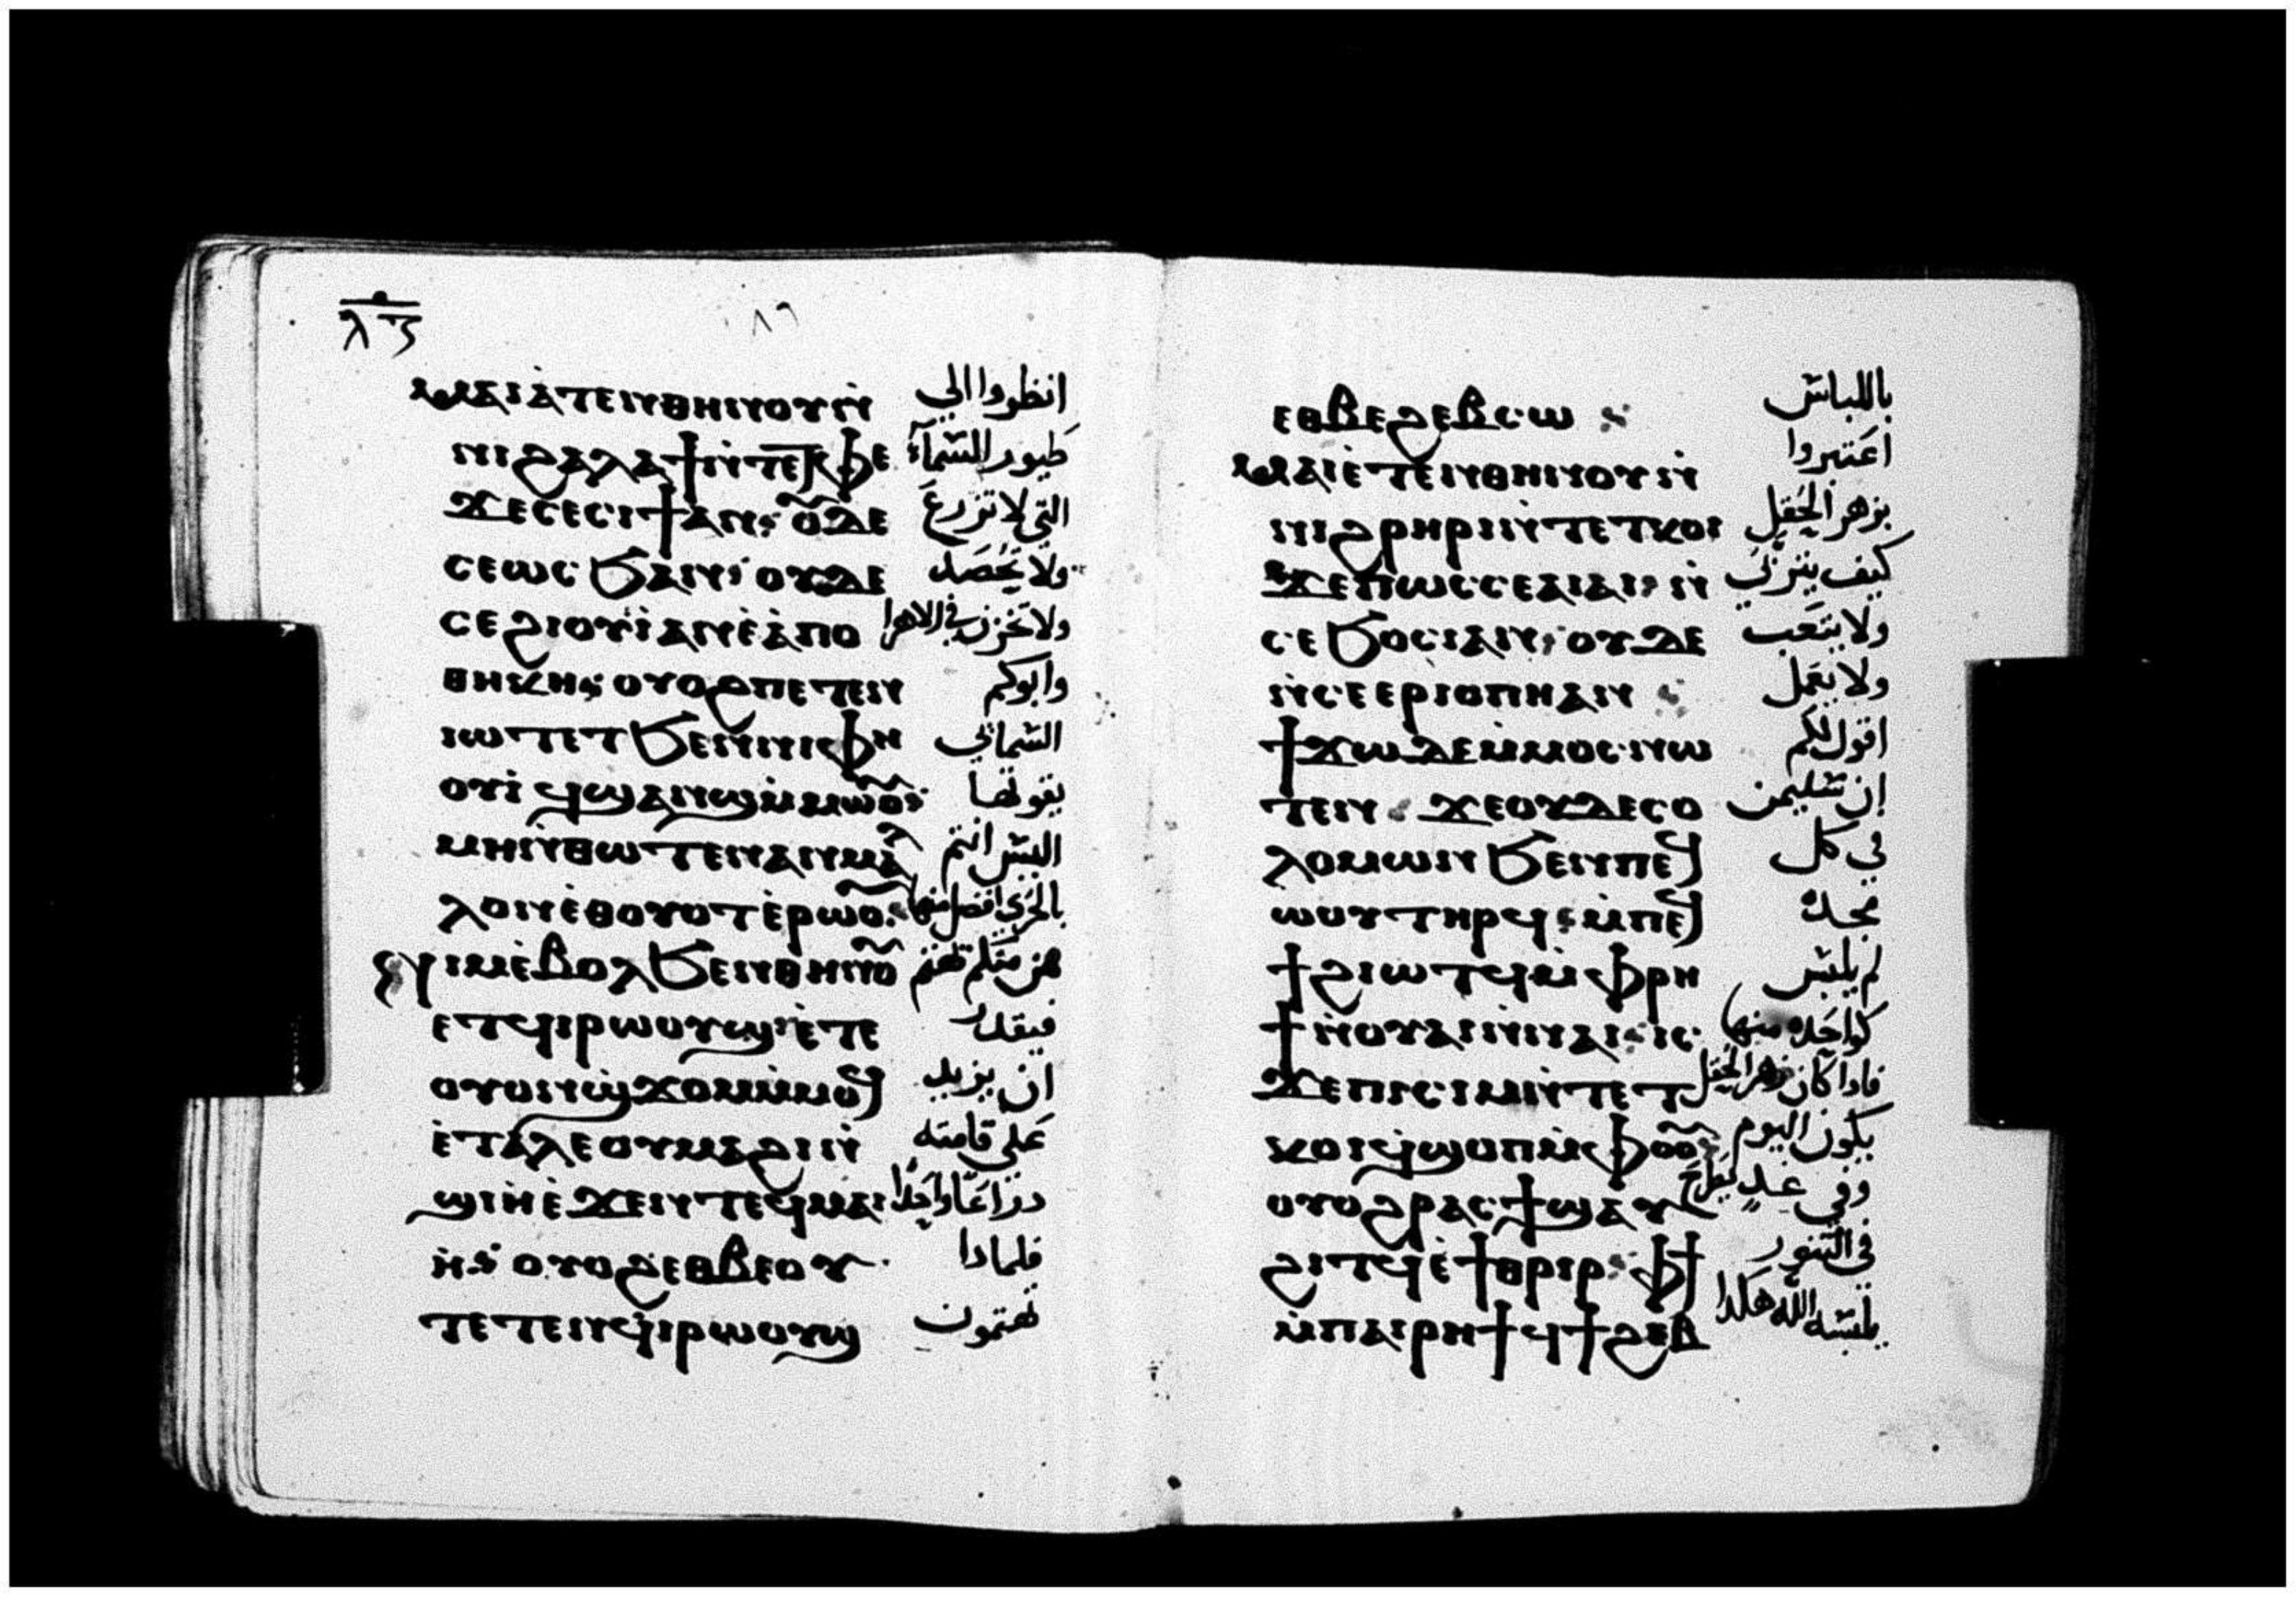 ⲗ︤ⲍ︥
٨٦
ⲙⲁⲓⲁⲧⲉⲛⲑⲏⲛⲟⲩⲛ̀ انظروا الي
ⲛⲓϩⲁⲗⲁϯⲛ̀ⲧⲉⲧⲫⲉ طيور السمآء
ϫⲉⲥⲉⲥⲓϯⲁⲛ ⲟⲩⲇⲉ التي لا تزرع
ⲥⲉⲱⲥϧⲁⲛ ⲟⲩⲇⲉ ولا تحصد
ⲥⲉϩⲓⲟⲩⲓ̀ⲁⲛⲉ̀ⲁ̀ⲡⲟ ولا تخزن في الاهرا
ⲑⲏⲕⲏ ⲟⲩⲟϩⲡⲉⲧⲉⲛ وابوكم
ⲓⲱⲧⲉⲧϧⲉⲛⲛⲓⲫⲏ السماني
ⲟⲩⲓ̀ ϥϣⲁⲛϣⲙ̀ⲙⲱⲟⲩ يقوتها
ⲙⲏⲛ̀ⲑⲱⲧⲉⲛⲁⲛⲙⲁ̀ اليس انتم
ⲗⲟⲛⲉ̀ⲑⲟⲩⲟⲧⲉ̀ⲣⲱⲟⲩ بالحري افضل منها
ⲛⲓⲙⲉ̀ⲃⲟⲗϧⲉⲛⲑⲏⲛⲟⲩ فمن منكم يهتم
ⲉⲧϥⲓⲣⲱⲟⲩϣ ⲉ̀ⲧⲉ فيقدر
ⲟⲩⲟⲛϣϫⲟⲙⲙ̀ⲙⲟϥ ان يزيد
ⲉ̀ⲧⲁⲗⲉⲟⲩⲙⲁϩⲓⲛ̀ علي قامته
ϣⲓⲏⲉ̀ϫⲉⲛⲧⲉϥⲙⲁⲓ ذراعًا واحدًا
ⲏ ⲟⲩⲟϩⲉⲑⲃⲉⲟⲩ فلماذا
ⲧⲉⲧⲉⲛϥⲓⲣⲱⲟⲩϣ تهتمون
ⲉⲑⲃⲉϩⲉⲃⲥⲱ باللباس
ⲙⲁⲓⲉ̀ⲧⲉⲛⲑⲏⲛⲟⲩⲛ̀ اعتبروا
ⲛⲓϩⲣⲏⲣⲓⲛ̀ⲧⲉⲧⲕⲟⲓ بزهر الحقل
ϫⲉⲡⲱⲥⲥⲉⲁⲓⲁⲓ ⲛ̀ كيف يتربي
ⲥⲉϧⲟⲥⲓⲁⲛ ⲟⲩⲇⲉ ولا يتعب
ⲛ̀ⲥⲉⲉⲣⲓⲟⲡⲏⲁⲛ ولا يعمل
ϯϫⲱⲇⲉⲙ̀ⲙⲟⲥⲛⲱ اقول لكم
ⲧⲉⲛ ϫⲉⲟⲩⲇⲉⲥⲟ ان سليمن
ⲗⲟⲙⲱⲛϧⲉⲛⲡⲉϥ في كل
ⲱⲟⲩⲧⲏⲣϥ ⲙ̀ⲡⲉϥ مجده
ϯϩⲓⲱⲧϥⲙ̀ⲫⲣⲏ لم يلبس
ϯⲛ̀ⲟⲩⲁⲓⲛ̀ⲛⲁⲓ ⲓⲥ كواحده منها
ϫⲉⲡⲓⲥⲓⲙⲛ̀ⲧⲉⲧ فاذا كان زهر الحقل
ⲕⲟⲓϥϣⲟⲡⲙ̀ⲫⲟⲟⲩ يكون اليوم
ⲟⲩⲟϩⲣⲁⲥϯϣⲁⲩ وفي غدٍ يطرح
ϩⲓⲧϥⲉ̀ϯⲑⲣⲓⲣ ⲫϯ في التنور
ⲙ̀ⲡⲁⲓⲣⲏϯϥϯϩⲉⲃ يلبسه الله هكذا